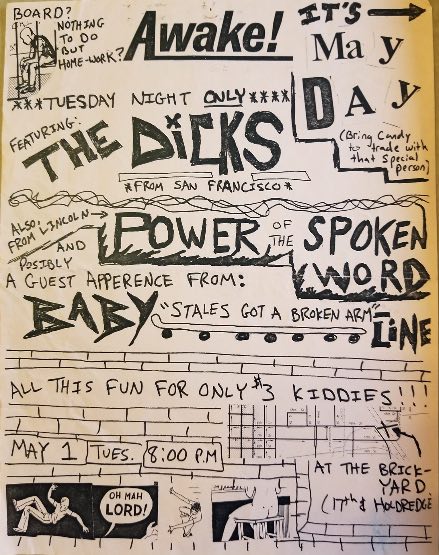 BOARD?
NOTHING
TO DO
BUT
HOME-WORK?
Awake!
IT'S
May
DAy
(Bring Candy
to trade with
that special
person)
***TUESDAY NIGHT ONLY****
FEATURING:
THE DiCKS
*FROM SAN FRANCISCO*
ALSO:
FROM LINCOLN
POWER OF THE SPOKEN WORD
AND
POSIBLY
A GUEST APPERENCE FROM:
BABY "STALES GOT A BROKEN ARM"- LiNE
ALL THIS FUN FOR ONLY $3 KIDDIES!!!
MAY 1 TUES. 8:00 P.M
AT THE BRICK-
YARD
(17th & HOLDREDGE)
OH MAH
LORD!